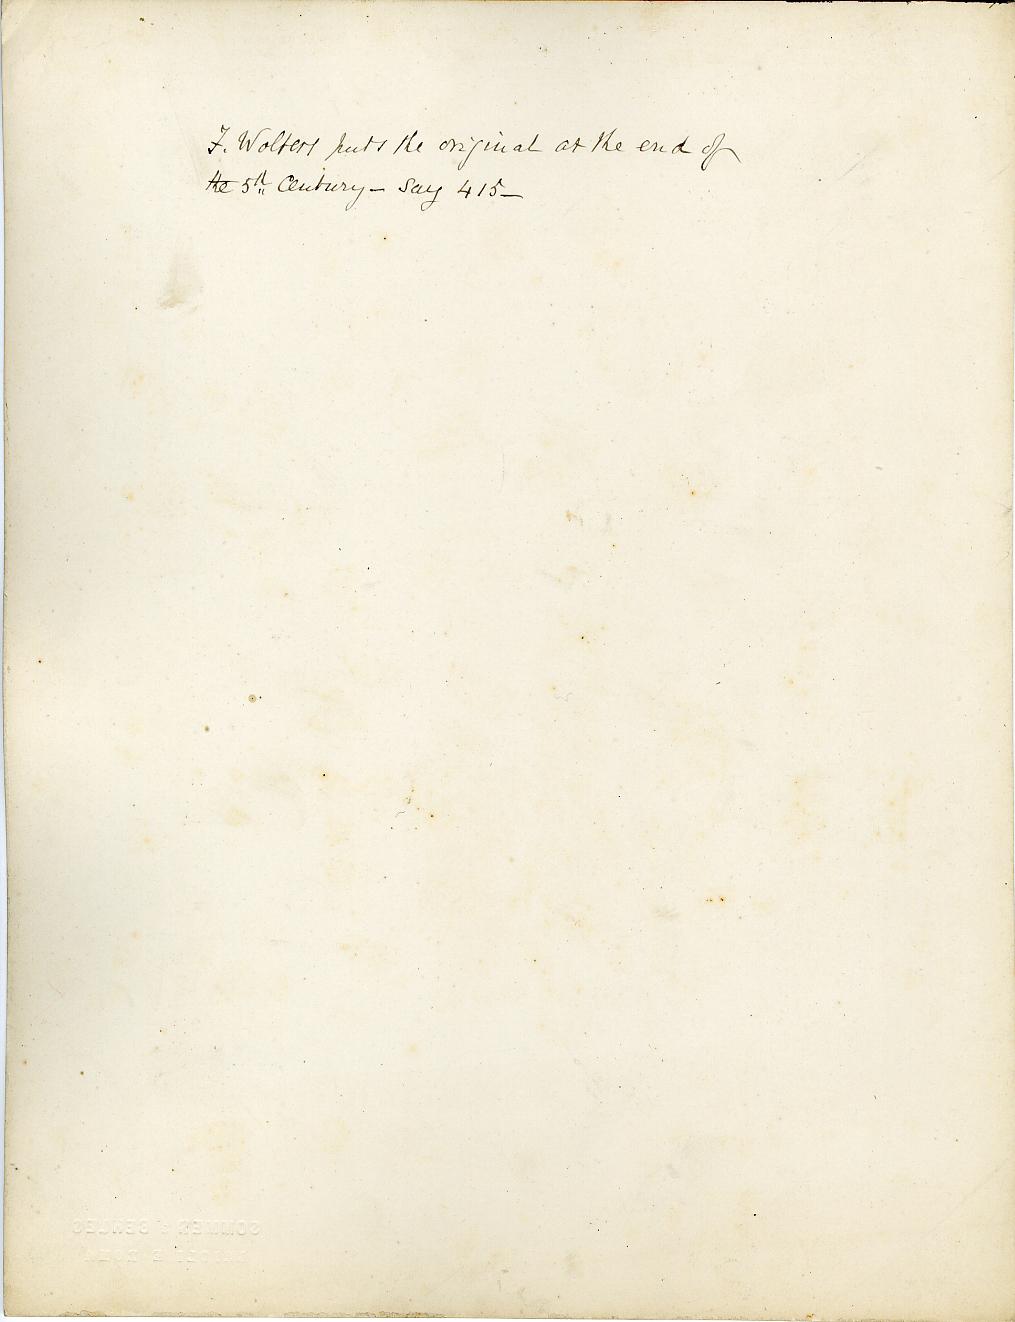 F. Wolters puts the original at the end of
the 5th Century – say 415 –
SOMMER & BEHLES
NAPOLI E ROMA